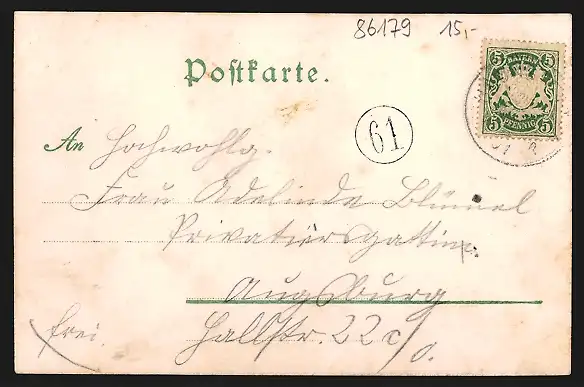 86179 15,-
Postkarte.
BAYERN
5 5
5 PFENNIG 5
61
An Hochwohlg.
Frau Adelinde Blümel
Privatiersgattin.
Augsburg
Hallstr. 22 c/0.
frei.